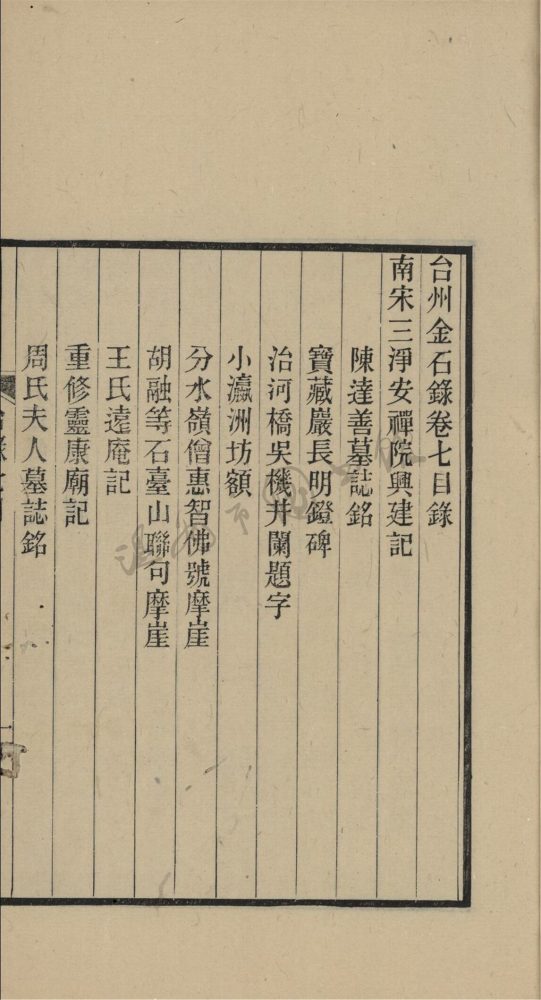 台州金石錄卷七目錄
南宋三淨安禪院興建記
陳達善墓誌銘
寶藏巖長明鐙碑
治河橋吳機井闌題字
小瀛洲坊額
分水嶺僧惠智佛號摩崖
胡融等石臺山聯句摩崖
王氏逵庵記
重修靈康廟記
周氏夫人墓誌銘